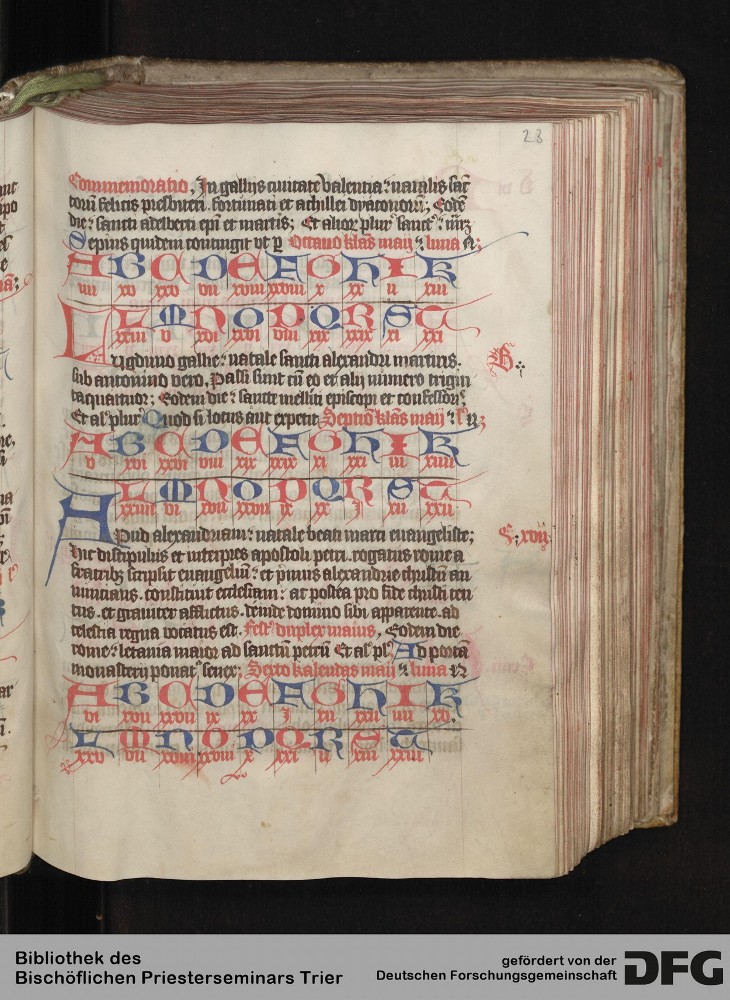 23
Commemoratio. In gallijs ciuitate valentia: natalis sāc
torū felicis presbiteri. fortunati et achillei dyaconorū; Eodē
die: sancti adelberti ep̄i et martis; Et alior plur sanct
Sepius quidem contingit vt p Octauo klas maij luna A;
A B C D E F G H I K
xv xxv vii xviii xxviii x xx ii xiii
L M N O P Q R S T
xxiii v xvi xxvi viii xix xxix xi xxi
Lugduno gallie: natale sancti alexandri martiris.
sub antonino vero. Passi sunt cū eo et alij numero trigin
taquattuor; Eodem die: sancte melliti episcopi et confessor
Et al plur Quod si locus aut expetit Septīo klas maij
B
A B C D E F G H I K
v xvi xxvi viii xix xxix xi xxi iii xiiii
L M N O P Q R S T
xxiiii vi xxvii ix xx i xii xxii
Apud alexandriam: natale beati marci euangeliste;
hic discipulus et interpres apostoli petri. rogatus rome a
fratribz scripsit euangeliū: et primus alexandrie christū an
nuncians. constituit ecclesiam: at postea pro fide christi ten
tus. et grauiter afflictus. deinde domino sibi apparente. ad
celestia regna vocatus est. Fest duplex maius. Eodem die
rome: letania maior ad sanctū petrū Et al pl Ad portā
monasterij ponat senex; Sexto kalendas maij luna
xvij
A B C D E F G H I K
vi xvii xxvii ix xx i xii xxii iiii xv.
L M N O P Q R S T
xxv vii xviii xxviii x xxi ii xiii xxiii
Bibliothek des
Bischöflichen Priesterseminars Trier
gefördert von der
Deutschen Forschungsgemeinschaft
DFG